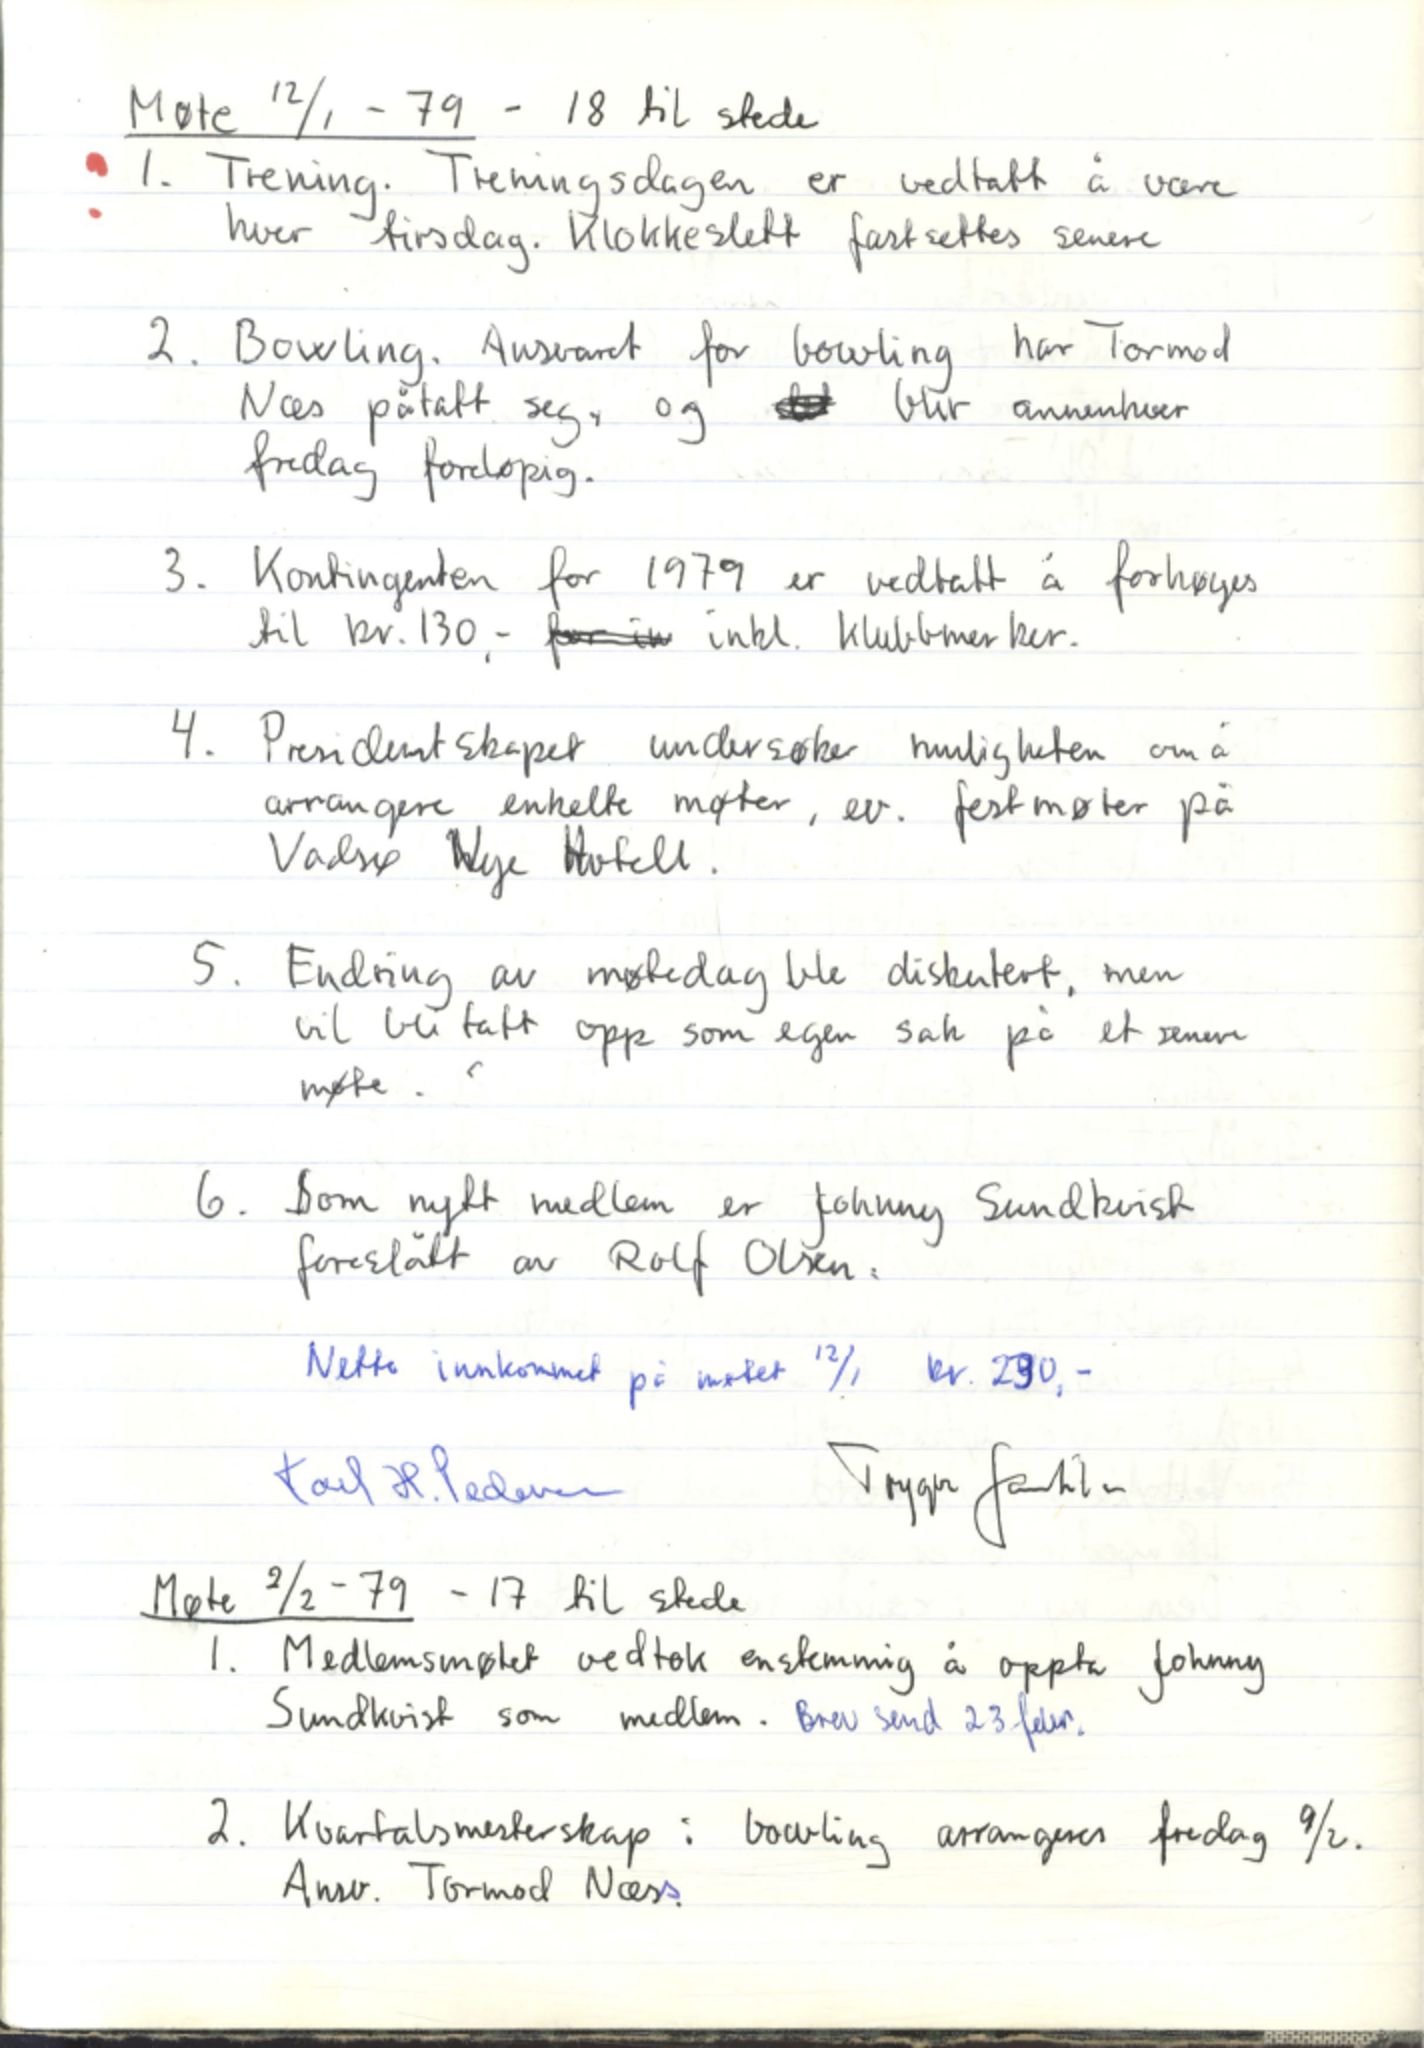 Møte 12/1 - 79 - 18 til stede
1. Trening. Treningsdagen er vedtatt å være
hver tirsdag. Klokkeslett fastsettes senere
2. Bowling. Ansvaret for bowling har Tormod
Næs påtatt seg, og blir annenhver
fredag foreløpig.
3. Kontingenten for 1979 er vedtatt å forhøyes
til kr. 130,- for in inkl. klubbmerker.
4. Presidentskapet undersøker muligheten om å
arrangere enkelte møter, ev. festmøter på
Vadsø Nye Hotell.
5. Endring av møtedag ble diskutert, men
vil bli tatt opp som egen sak på et senere
møte.
6. Som nytt medlem er Johnny Sundkvist
foreslått av Rolf Olsen.
Netto innkommet på møtet 12/1 kr. 290,-
Karl H. Pedersen Trygve
Møte 2/2 - 79 - 17 til stede
1. Medlemsmøtet vedtok enstemmig å oppta Johnny
Sundkvist som medlem. Brev send 23 febr.
2. Kvartalsmesterskap i bowling arrangeres fredag 9/2.
Ansv. Tormod Næss.